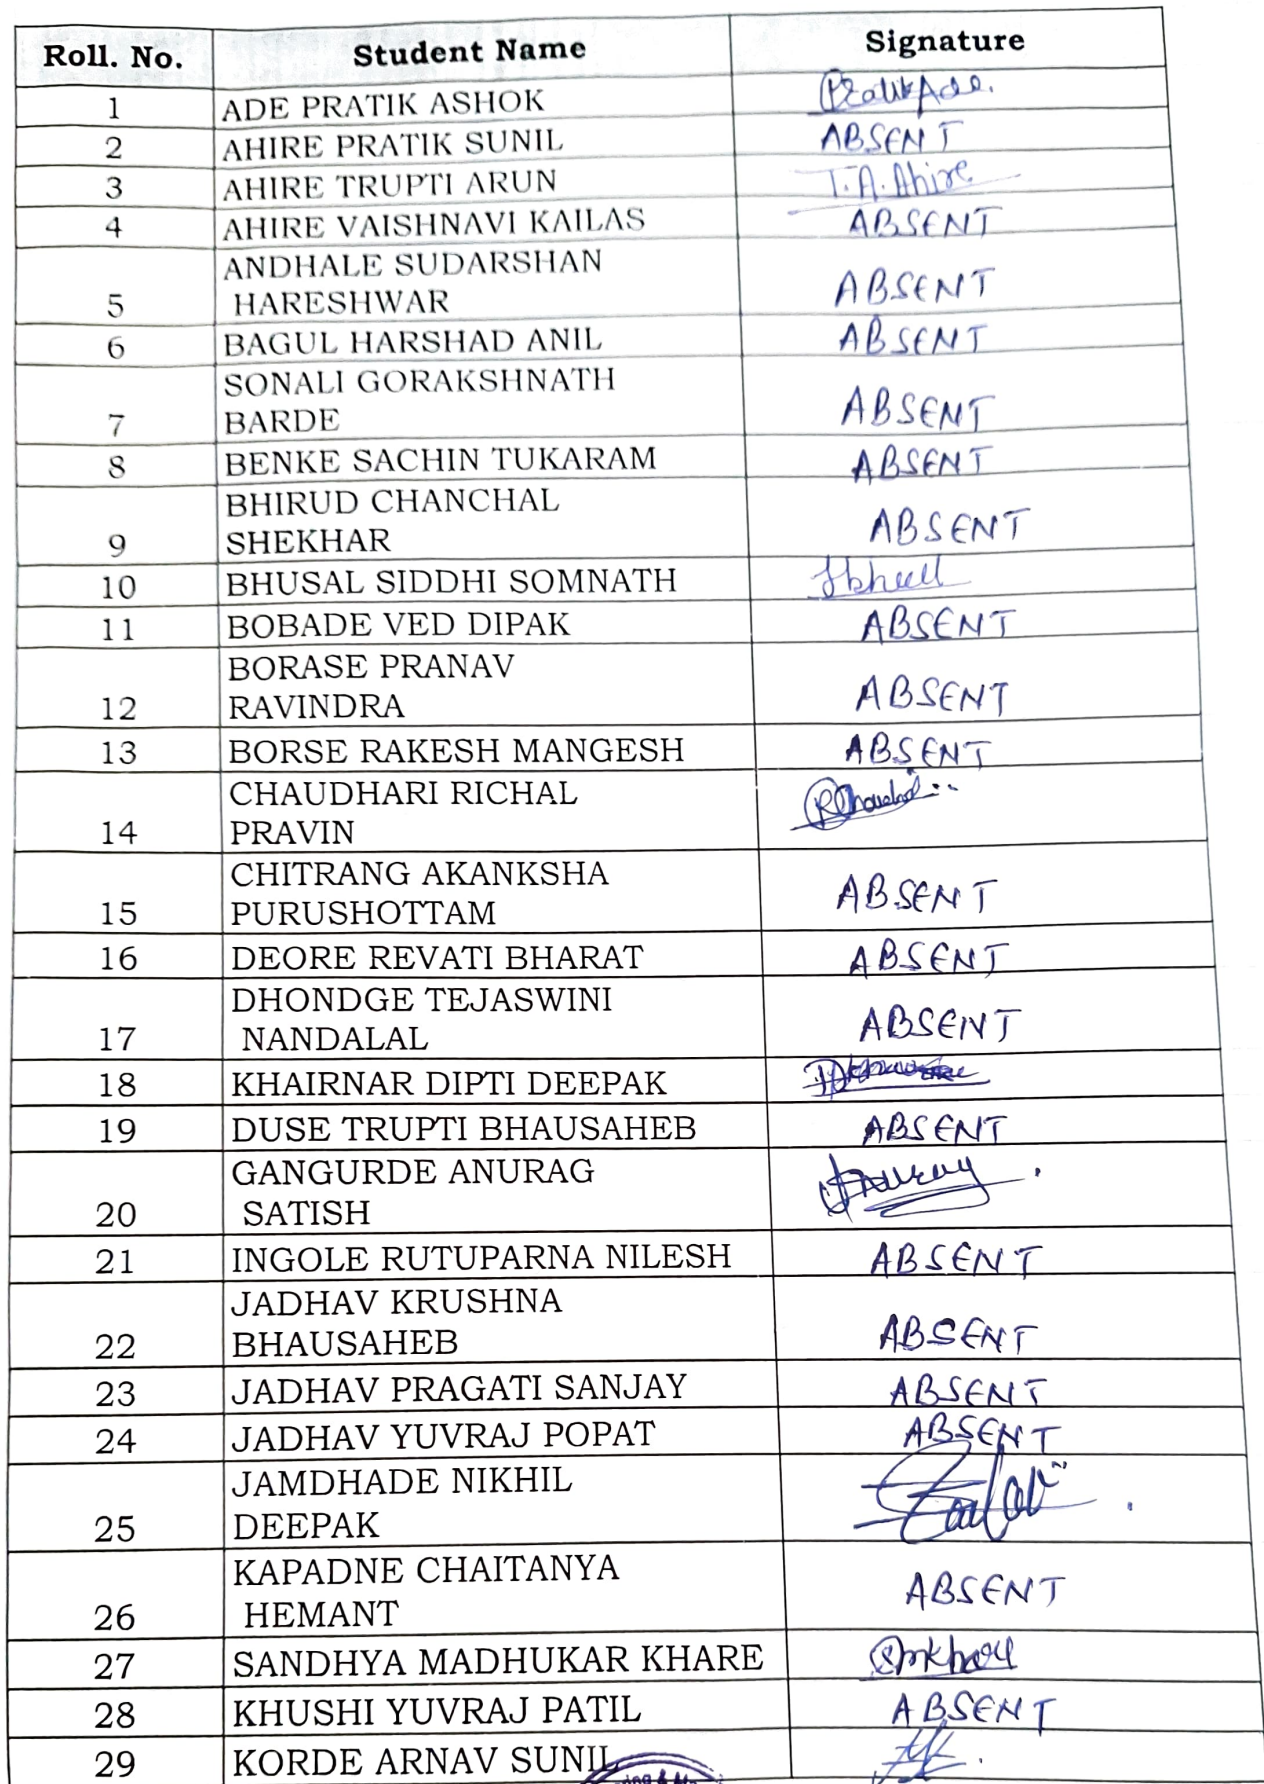 Roll. No. Student Name Signature
1 ADE PRATIK ASHOK Pratik Ade.
2 AHIRE PRATIK SUNIL ABSENT
3 AHIRE TRUPTI ARUN T.A.Ahire
4 AHIRE VAISHNAVI KAILAS ABSENT
ANDHALE SUDARSHAN
5 HARESHWAR ABSENT
6 BAGUL HARSHAD ANIL ABSENT
SONALI GORAKSHNATH
7 BARDE ABSENT
8 BENKE SACHIN TUKARAM ABSENT
BHIRUD CHANCHAL
9 SHEKHAR ABSENT
10 BHUSAL SIDDHI SOMNATH
11 BOBADE VED DIPAK ABSENT
BORASE PRANAV
12 RAVINDRA ABSENT
13 BORSE RAKESH MANGESH ABSENT
CHAUDHARI RICHAL
14 PRAVIN
CHITRANG AKANKSHA
15 PURUSHOTTAM ABSENT
16 DEORE REVATI BHARAT ABSENT
DHONDGE TEJASWINI
17 NANDALAL ABSENT
18 KHAIRNAR DIPTI DEEPAK
19 DUSE TRUPTI BHAUSAHEB ABSENT
GANGURDE ANURAG
20 SATISH
21 INGOLE RUTUPARNA NILESH ABSENT
JADHAV KRUSHNA
22 BHAUSAHEB ABSENT
23 JADHAV PRAGATI SANJAY ABSENT
24 JADHAV YUVRAJ POPAT ABSENT
JAMDHADE NIKHIL
25 DEEPAK
KAPADNE CHAITANYA
26 HEMANT ABSENT
27 SANDHYA MADHUKAR KHARE
28 KHUSHI YUVRAJ PATIL ABSENT
29 KORDE ARNAV SUNIL